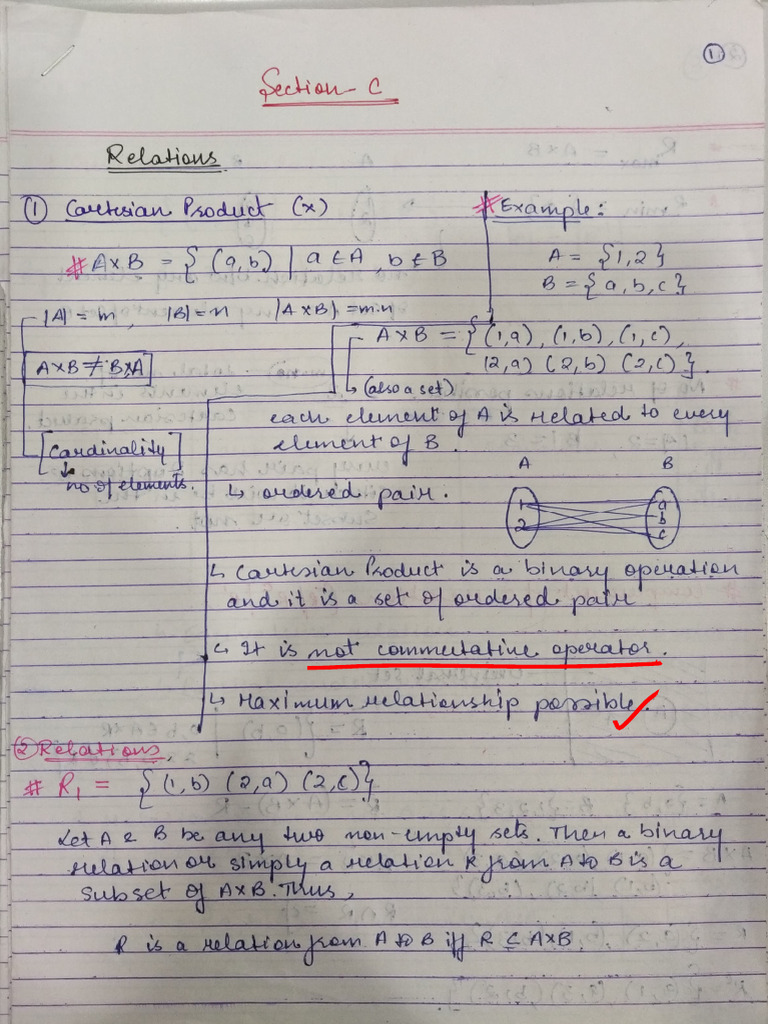 1
Section - C
Relations
① Cartesian Product (x)
# A×B = { (a,b) | a ∈ A, b ∈ B
|A| = m, |B| = n |A×B| = m.n
A×B ≠ B×A
[Cardinality]
↓
no of elements.
# Example:
A = {1,2}
B = {a,b,c}
A×B = { (1,a), (1,b), (1,c),
(2,a) (2,b) (2,c) }.
↳ (also a set)
each element of A is related to every
element of B.
↳ ordered pair.
A B
1 a
2 b
c
↳ Cartesian Product is a binary operation
and it is a set of ordered pair
↳ It is not commutative operator.
↳ Maximum relationship possible.
② Relations.
# R₁ = { (1,b) (2,a) (2,c) }
Let A & B be any two non-empty sets. Then a binary
relation or simply a relation R from A to B is a
subset of A×B. Thus,
R is a relation from A to B iff R ⊆ A×B.